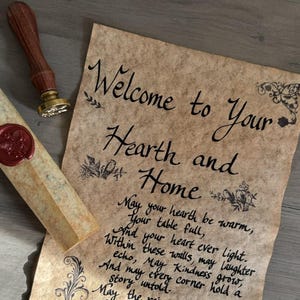 Welcome to Your
Hearth and
Home
May your hearth be warm,
Your table full,
And your heart ever light.
Within these walls, may laughter
echo, May Kindness grow,
And may every corner hold a
story untold.
May the